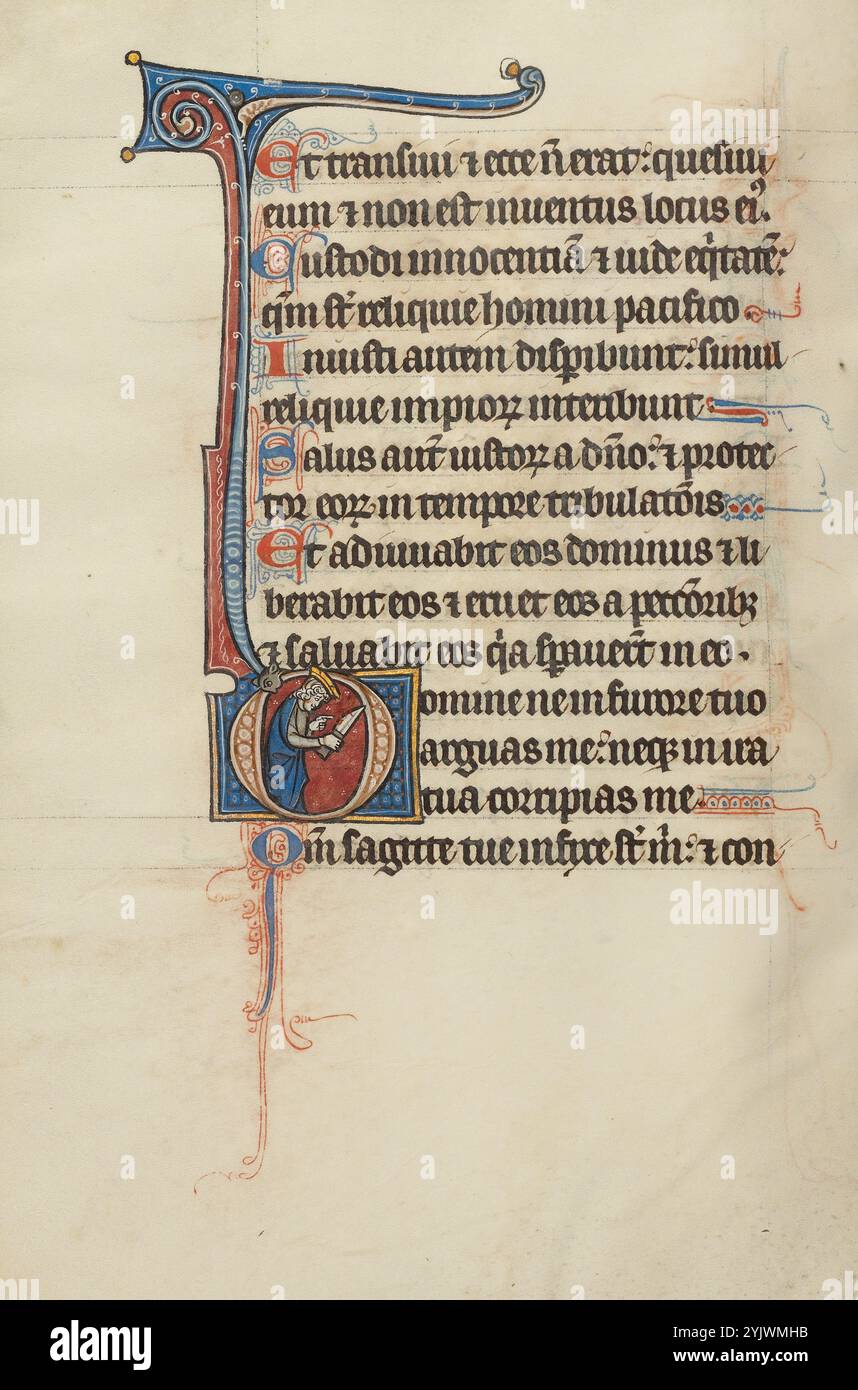 Et transivi ⁊ ecce ñ erat: quesivi
eum ⁊ non est inventus locus eiꝰ.
Custodi innocentiā ⁊ vide eq̇tatē:
qm̄ st̄ reliquie homini pacifico.
Iniusti autem disꝑibunt: simul
reliquie impioꝝ interibunt
Salus aut̄ iustoꝝ a dño: ⁊ protec
tor eoꝝ in tempore tribulatōis
Et adiuvabit eos dominus ⁊ li
berabit eos ⁊ eruet eos a peccōribꝫ
⁊ salvabit eos q̇a sꝑaverūt in eo.
Domine ne in furore tuo
arguas me: neqꝫ in ira
tua corripias me
Qm̄ sagitte tue infixe st̄ m̄: ⁊ con
alamy
Image ID: 2YJWMHB
www.alamy.com